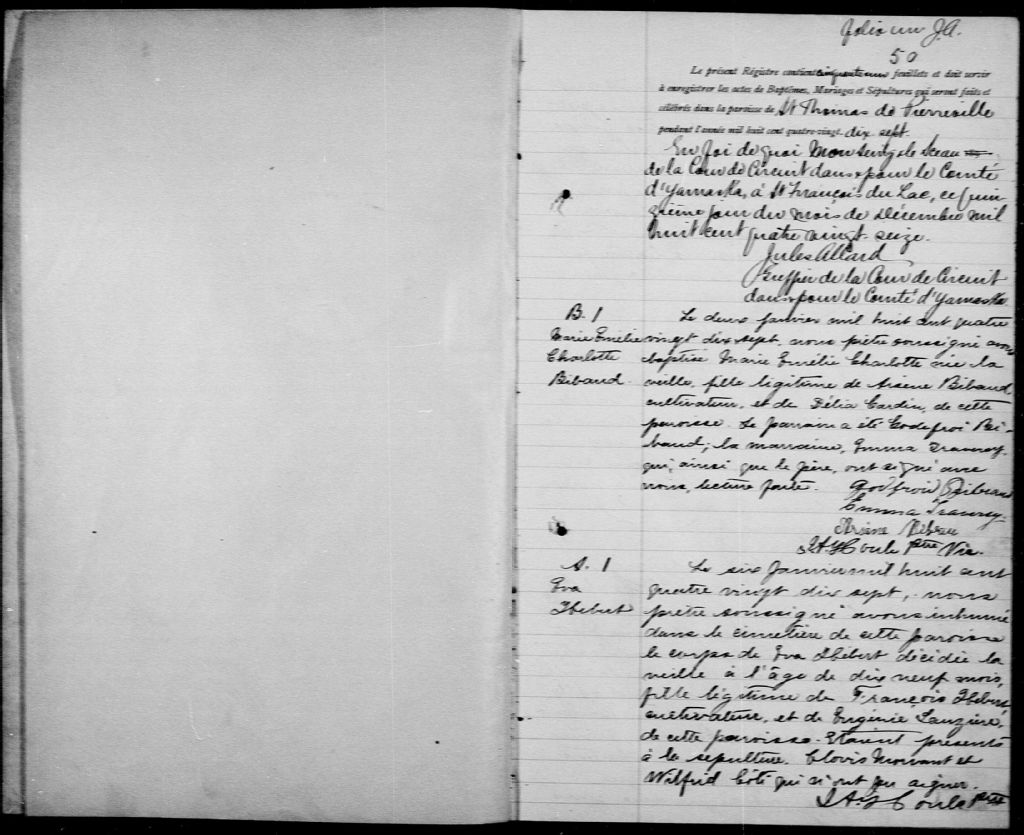 folio un J.A.
50
Le présent Régistre contient cinquante feuillets et doit servir
à enregistrer les actes de Baptêmes, Mariages et Sépultures qui seront faits et
célébrés dans la paroisse de St Thomas de Pierreville
pendant l'année mil huit cent quatre-vingt-dix-sept.
En foi de quoi Mon seing & le sceau
de la Cour de Circuit dans & pour le Comté
d'Yamaska, à St François du Lac, ce quin-
zième jour du mois de Décembre mil
huit cent quatre vingt-seize.
Jules Allard
Greffier de la Cour de Circuit
dans & pour le Comté d'Yamaska
B. 1
Marie Emélie
Charlotte
Bibaud
Le deux janvier mil huit cent quatre
vingt dix sept, nous prêtre soussigné avons
baptisé Marie Emélie Charlotte née la
veille, fille légitime de Arsène Bibaud
cultivateur, et de Délia Cardin, de cette
paroisse. Le parrain a été Godefroi Bi-
baud; la marraine, Emma
qui, ainsi que le père, ont signé avec
nous, lecture faite. Godfroid Bibeau
Emma
Arsene Bibeau
Houle ptre Vic.
S. 1
Eva
Hébert
Le six Janvier mil huit cent
quatre vingt dix sept, nous
prêtre soussigné avons inhumé
dans le cimetière de cette paroisse
le corps de Eva Hébert décédée la
veille à l'âge de dix neuf mois,
fille légitime de François Hébert
cultivateur, et de Eugénie Lauzière,
de cette paroisse. Etaient présents
à la sépulture, Clovis et
Wilfrid Côté qui n'ont pu signer.
Houle ptre